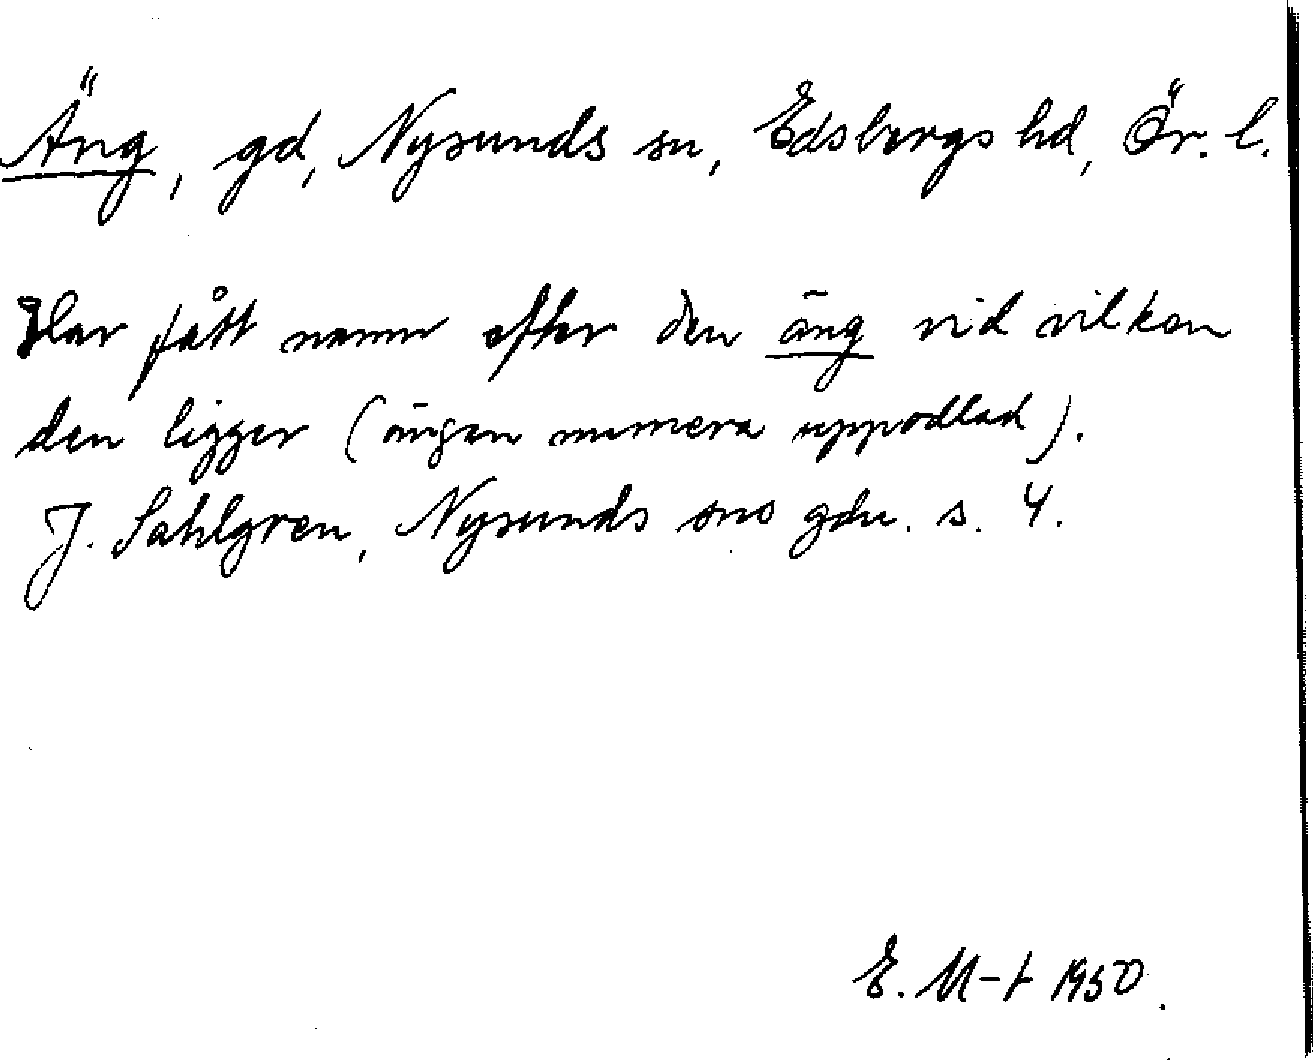 Äng, gd, Nysunds sn, Edsbergs hd, Ör. l.
Har fått namn efter den äng vid vilken
den ligger (ängen numera uppodlad).
J. Sahlgren, Nysunds sns gdn. s. 4.
E. M-t 1950.